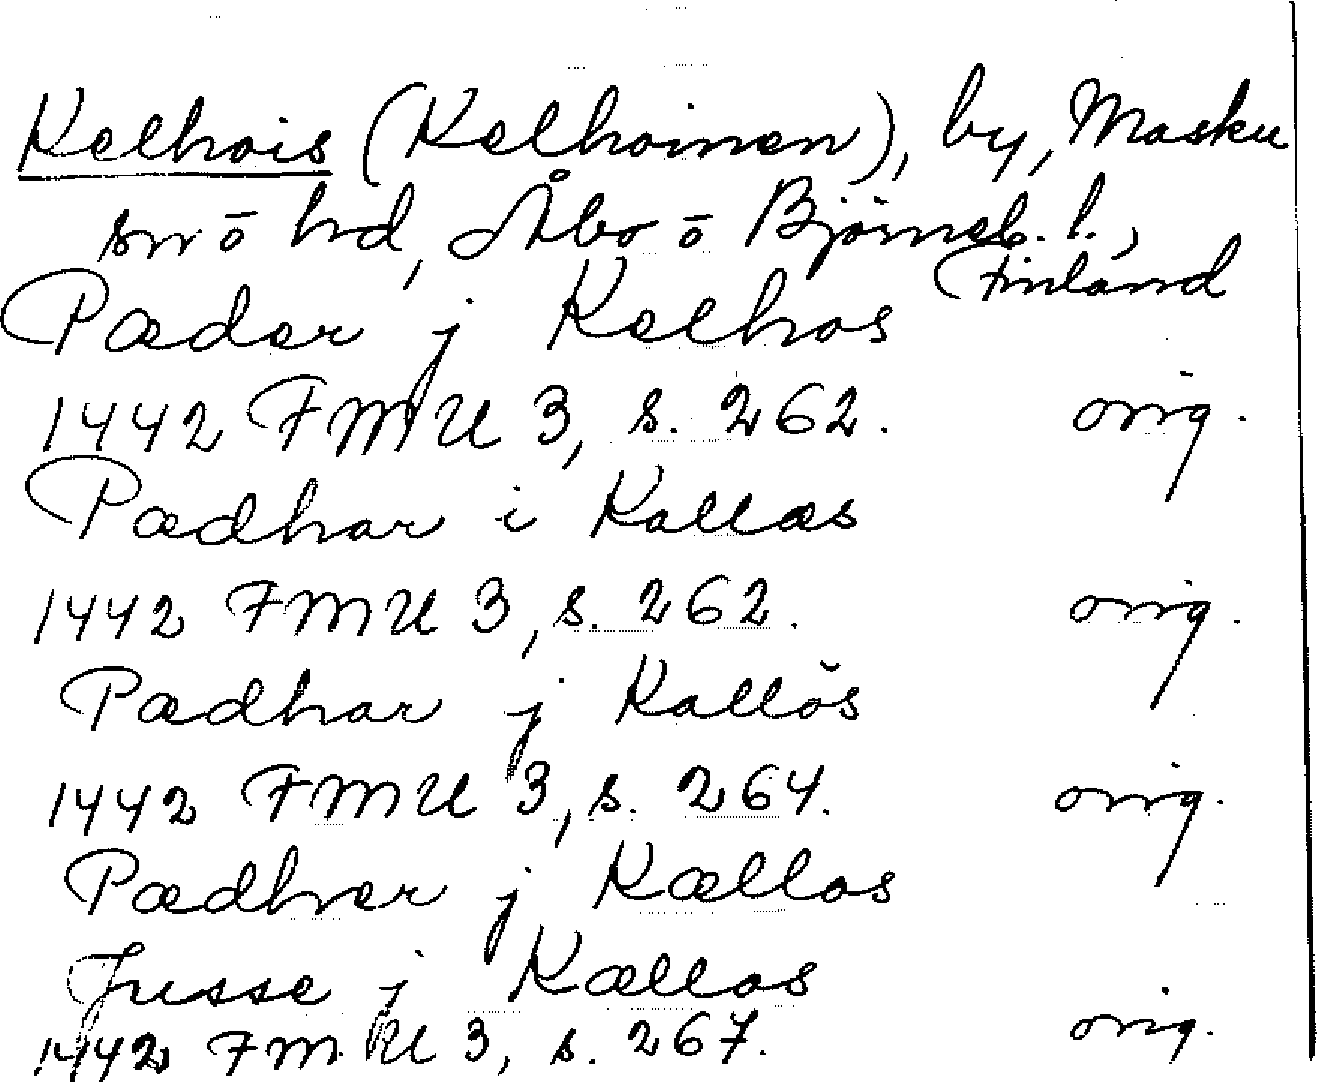 Kelhois (Kelhoinen), by, Masku
sn ō hd, Åbo ō Björneb. l.,
Finland
Pæder j Kelhos
1442 FMU 3, s. 262. orig.
Pædhar i Kallæs
1442 FMU 3, s. 262. orig.
Pædhar j Kallŏs
1442 FMU 3, s. 264. orig.
Pædher j Kællos
Jusse j Kællos
1442 FMU 3, s. 267. orig.